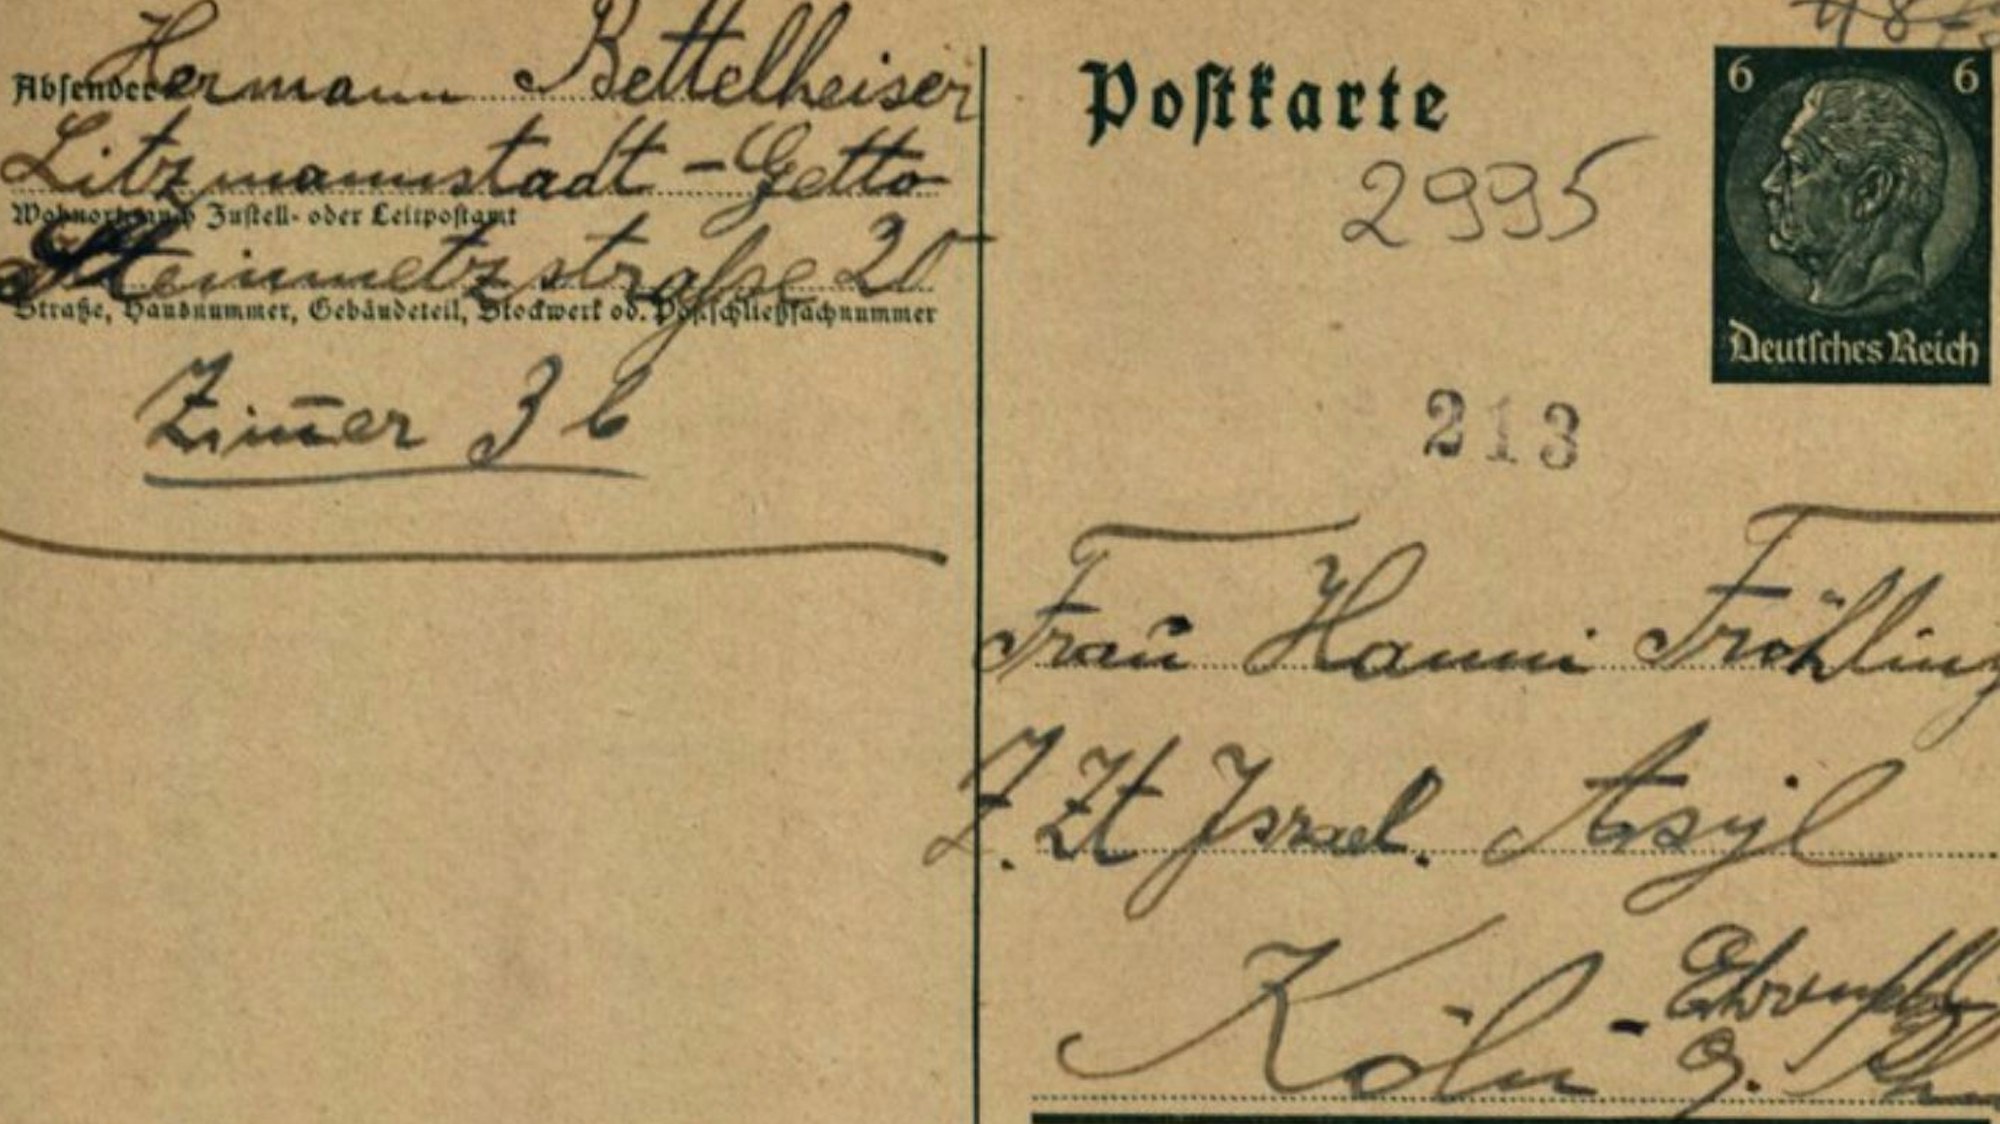 Absender: Hermann Bettelheiser
Litzmannstadt - Getto
Wohnort, auch Zustell- oder Leitpostamt
Steinmetzstraße 20
Straße, Hausnummer, Gebäudeteil, Stockwerk od. Postschließfachnummer
Zim̅er 3 b
Postkarte
2995
6 6
Deutsches Reich
213
Frau Hanni Fröhling
Z. Zt Israel. Asyl
Köln -